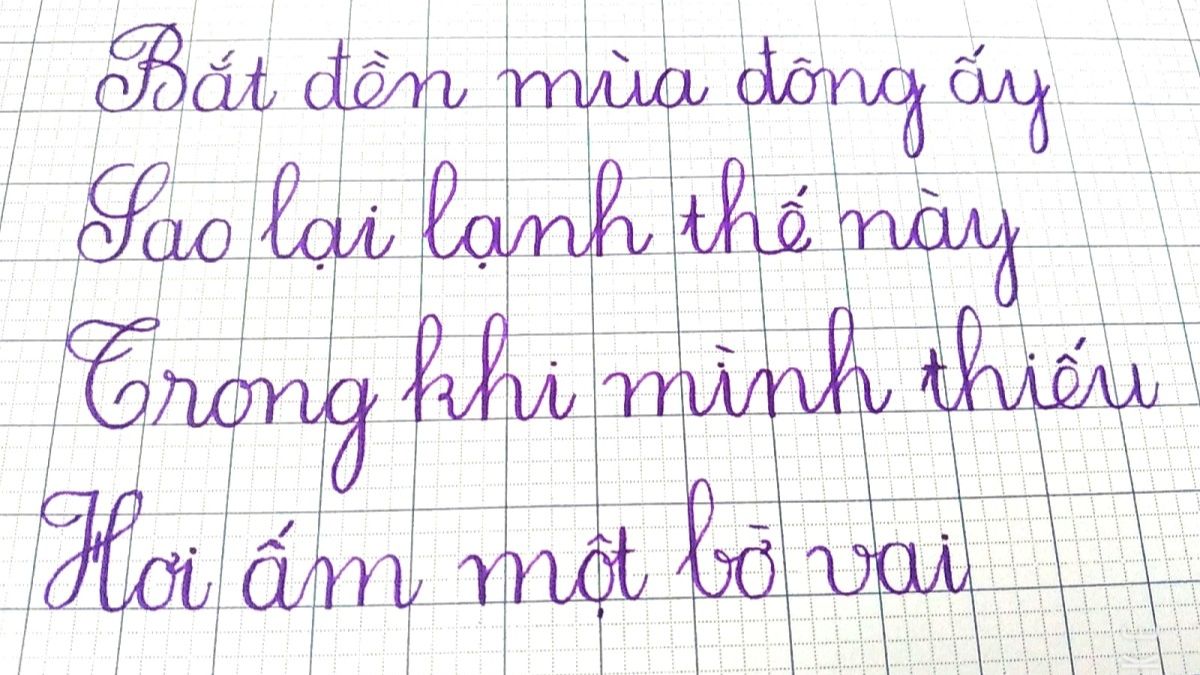 Bắt đền mùa đông ấy
Sao lại lạnh thế này
Trong khi mình thiếu
Hơi ấm một bờ vai